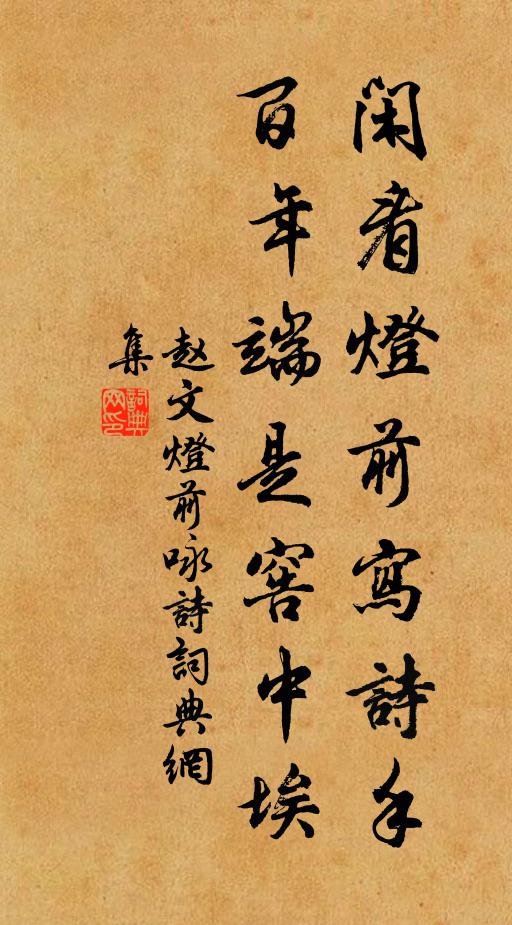 閑看燈前寫詩手
百年端是窖中埃
赵文燈前咏詩詞典網
集
詞典網印